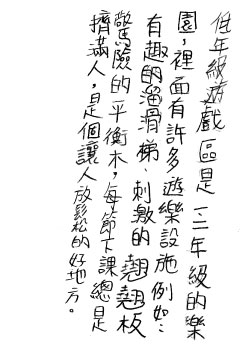 低年級遊戲區是一二年級的樂
園，裡面有許多遊樂設施例如：
有趣的溜滑梯、刺激的翹翹板
驚險的平衡木，每節下課總是
擠滿人，是個讓人放鬆的好地方。